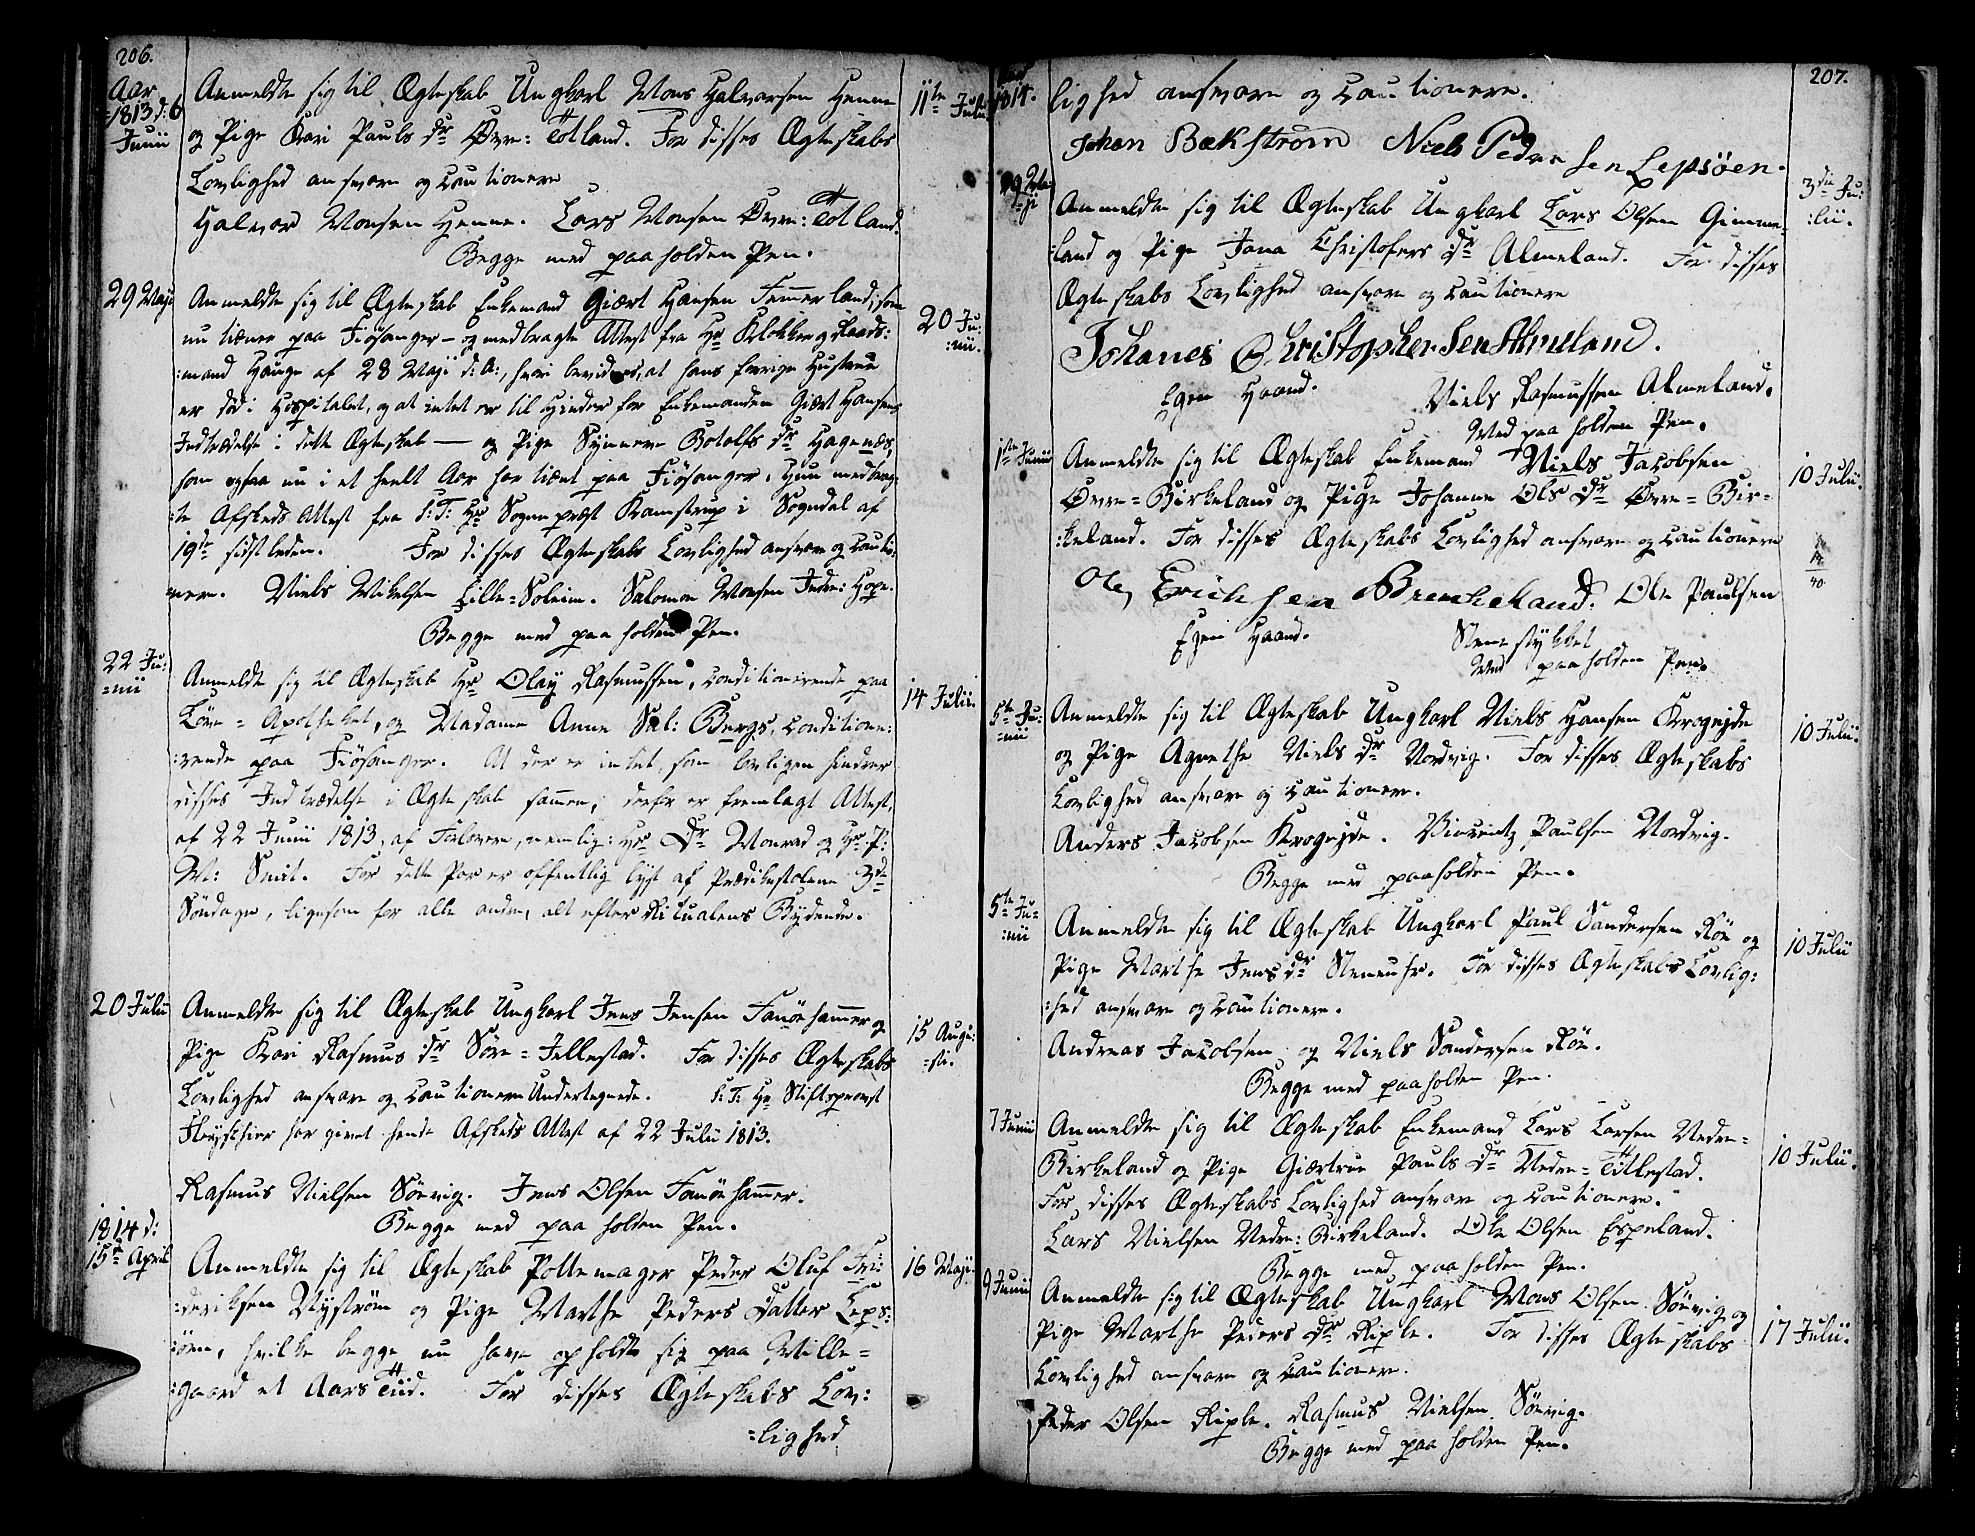 206.
Aar
1813 d: 6
Junii
Anmeldte sig til Ægteskab Ungkarl Mons Halvorsen Henne
og Pige Kari Pauls dr Øvre: Totland. For disses Ægteskabs
Lovlighed ansvare og cautionere
Halvor Monsen Henne. Lars Monsen Øvre: Totland.
Begge med paaholden Pen.
11te Julii
29 Maji
Anmeldte sig til Ægteskab Enkemand Giært Hansen Temmerland, som
nu tiener paa Fiøsanger – og medbragte Attest fra Hr Klokker og Raads:
:mand Hauge af 28 Maji d: A:, hvori bevidnes, at hans forrige Hustrue
er død i Hospitalet, og at intet er til Hinder for Enkemanden Giært Hansens
Indtrædelse i dette Ægteskab — og Pige Synneve Botolfs dr Hagenæs,
som ogsaa nu i et heelt Aar har tient paa Fiøsanger. Hun medbrag:
:te Afskeds Attest fra S: T: Hr Sognepræst Kamstrup i Sogndal af
19de sidstleden. For disses Ægteskabs Lovlighed ansvare og cautio:
nere. Niels Mikelsen Lille=Soleim. Salomon Monsen Indre: Hope.
Begge med paaholden Pen.
20 Ju:
:nii.
22 Ju:
=nii
Anmeldte sig til Ægteskab Hr Olay Rasmussen, conditionerende paa
Løve=Apotheket, og Madame Anne Sal: Bergs, conditione:
:rende paa Fiøsanger. At der er intet, som lovligen hindrer
disses Indtrædelse i Ægteskab sammen, derfor er fremlagt Attest,
af 22 Junii 1813, af Forlovere, nemlig: Hr Dr Monrad og Hr P:
M: Smit. For dette Par er offentlig lyst af Prædikestolene 3de
Søndage, ligesom for alle andre, alt efter Ritualens Bydende.
14 Julii.
20 Julii
Anmeldte sig til Ægteskab Ungkarl Jens Jensen Fanøehammer og
Pige Kari Rasmus dr Søre=Jellestad. For disses Ægteskabs
Lovlighed ansvare og cautionere Undertegnede. S: T: Hr Stiftsprovst
har givet hende Afskeds Attest af 22 Julii 1813.
Rasmus Nielsen Sørvig. Jens Olsen Fanøehammer.
Begge med paaholden Pen.
15 Augu:
=sti.
1814 d:
15de April
Anmeldte sig til Ægteskab Pottemager Peder Oluf Fri:
:deriksen Nystrøm og Pige Marthe Peders Datter Leps:
:øen, hvilke begge nu have opholdt sig paa Mille=
:gaard et Aars Tiid. For disses Ægteskabs Lov:
=lighed
16 Maji.
207.
Aar
1814.
lighed ansvare og cautionere.
Johan Bækstrøm Niels Pedersen Lepsøen.
29 Ma
=ji
Anmeldte sig til Ægteskab Ungkarl Lars Olsen Gimme:
:land og Pige Jana Christofers dr Almeland. For disses
Ægteskabs Lovlighed ansvare og cautionere
Johanes Christophersen Almeland.
Egen Haand. Niels Rasmussen Almeland.
Med paaholden Pen.
3die Ju:
:lii.
1ste Junii
Anmeldte sig til Ægteskab Enkemand Niels Jacobsen
Øvre=Birkeland og Pige Johanne Ols dr Øvre=Bir=
:keland. For disses Ægteskabs Lovlighed ansvare og cautionere
Ole Erichsen Brenheland. Ole Paulsen
Egen Haand. Stenestykket
Med paaholden Pen.
10 Julii.
40.
5te Ju:
=nii
Anmeldte sig til Ægteskab Ungkarl Niels Hansen Krogejde
og Pige Agnethe Niels dr Nordvig. For disses Ægteskabs
Lovlighed ansvare og cautionere.
Anders Jacobsen Krogejde. Vincentz Paulsen Nordvig.
Begge med paaholden Pen.
10 Julii.
5te Ju=
:nii
Anmeldte sig til Ægteskab Ungkarl Paul Sandersen Røe og
Pige Marthe Jens dr Steensh. For disses Ægteskabs Lovlig:
:hed ansvare og cautionere.
Andreas Jacobsen og Niels Sandersen Røe.
Begge med paaholden Pen.
10 Julii
7 Junii
Anmeldte sig til Ægteskab Enkemand Lars Larsen Nedre=
Birkeland og Pige Giærtrue Pauls dr Nedre=Titlestad.
For disses Ægteskabs Lovlighed ansvare og cautionere.
Lars Nielsen Nedre: Birkeland. Ole Olsen Espeland.
Begge med paaholden Pen.
10 Julii.
9 Junii
Anmeldte sig til Ægteskab Ungkarl Mons Olsen Sørvig og
Pige Marthe Peders dr Riple. For disses Ægteskabs
Lovlighed ansvare og cautionere.
Peder Olsen Riple. Rasmus Nielsen Sørvig.
Begge med paaholden Pen.
17 Julii.